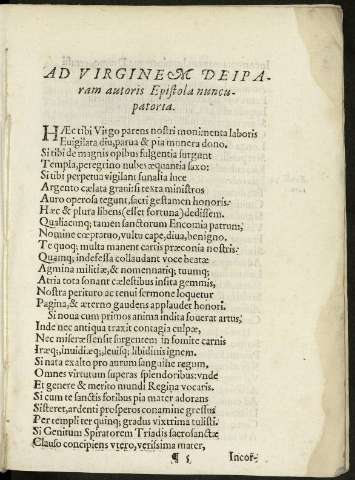 AD VIRGINEM DEIPA-
ram autoris Epistola nuncu-
patoria.
HÆc tibi Virgo parens nostri monimenta laboris
Euigilata diu, parua & pia munera dono.
Si tibi de magnis opibus fulgentia surgunt
Templa, peregrino nubes æquantia saxo:
Si tibi perpetua vigilant funalia luce
Argento cælata graui: si texta ministros
Auro operosa tegunt, sacri gestamen honoris:
Hæc & plura libens (esset fortuna) dedissem.
Qualiacunq; tamen sanctorum Encomia patrum,
Nomine cœptatuo, vultu cape, diua, benigno.
Te quoq; multa manent cartis præconia nostris:
Quamq; indefessa collaudant voce beatæ
Agmina militiæ, & nomen natiq; tuumq;
Atria tota sonant cælestibus insita gemmis,
Nostra perituro ac tenui sermone loquetur
Pagina, & æterno gaudens applaudet honori.
Si noua cum primos anima indita foueret artus,
Inde nec antiqua traxit contagia culpæ,
Nec miseræ sensit surgentem in fomite carnis
Iræq;, inuidiæq;, leuisq; libidinis ignem.
Si nata exalto pro auorum sanguine regum,
Omnes virtutum superas splendoribus: vnde
Et genere & merito mundi Regina vocaris.
Si cum te sanctis foribus pia mater adorans
Sisteret, ardenti prosperos conamine gressus
Per templi ter quinq; gradus vixtrima tulisti.
Si Genitum Spiratorem Triadis sacrosanctæ
Clauso concipiens vtero, verissima mater,
¶ 5 Incor-